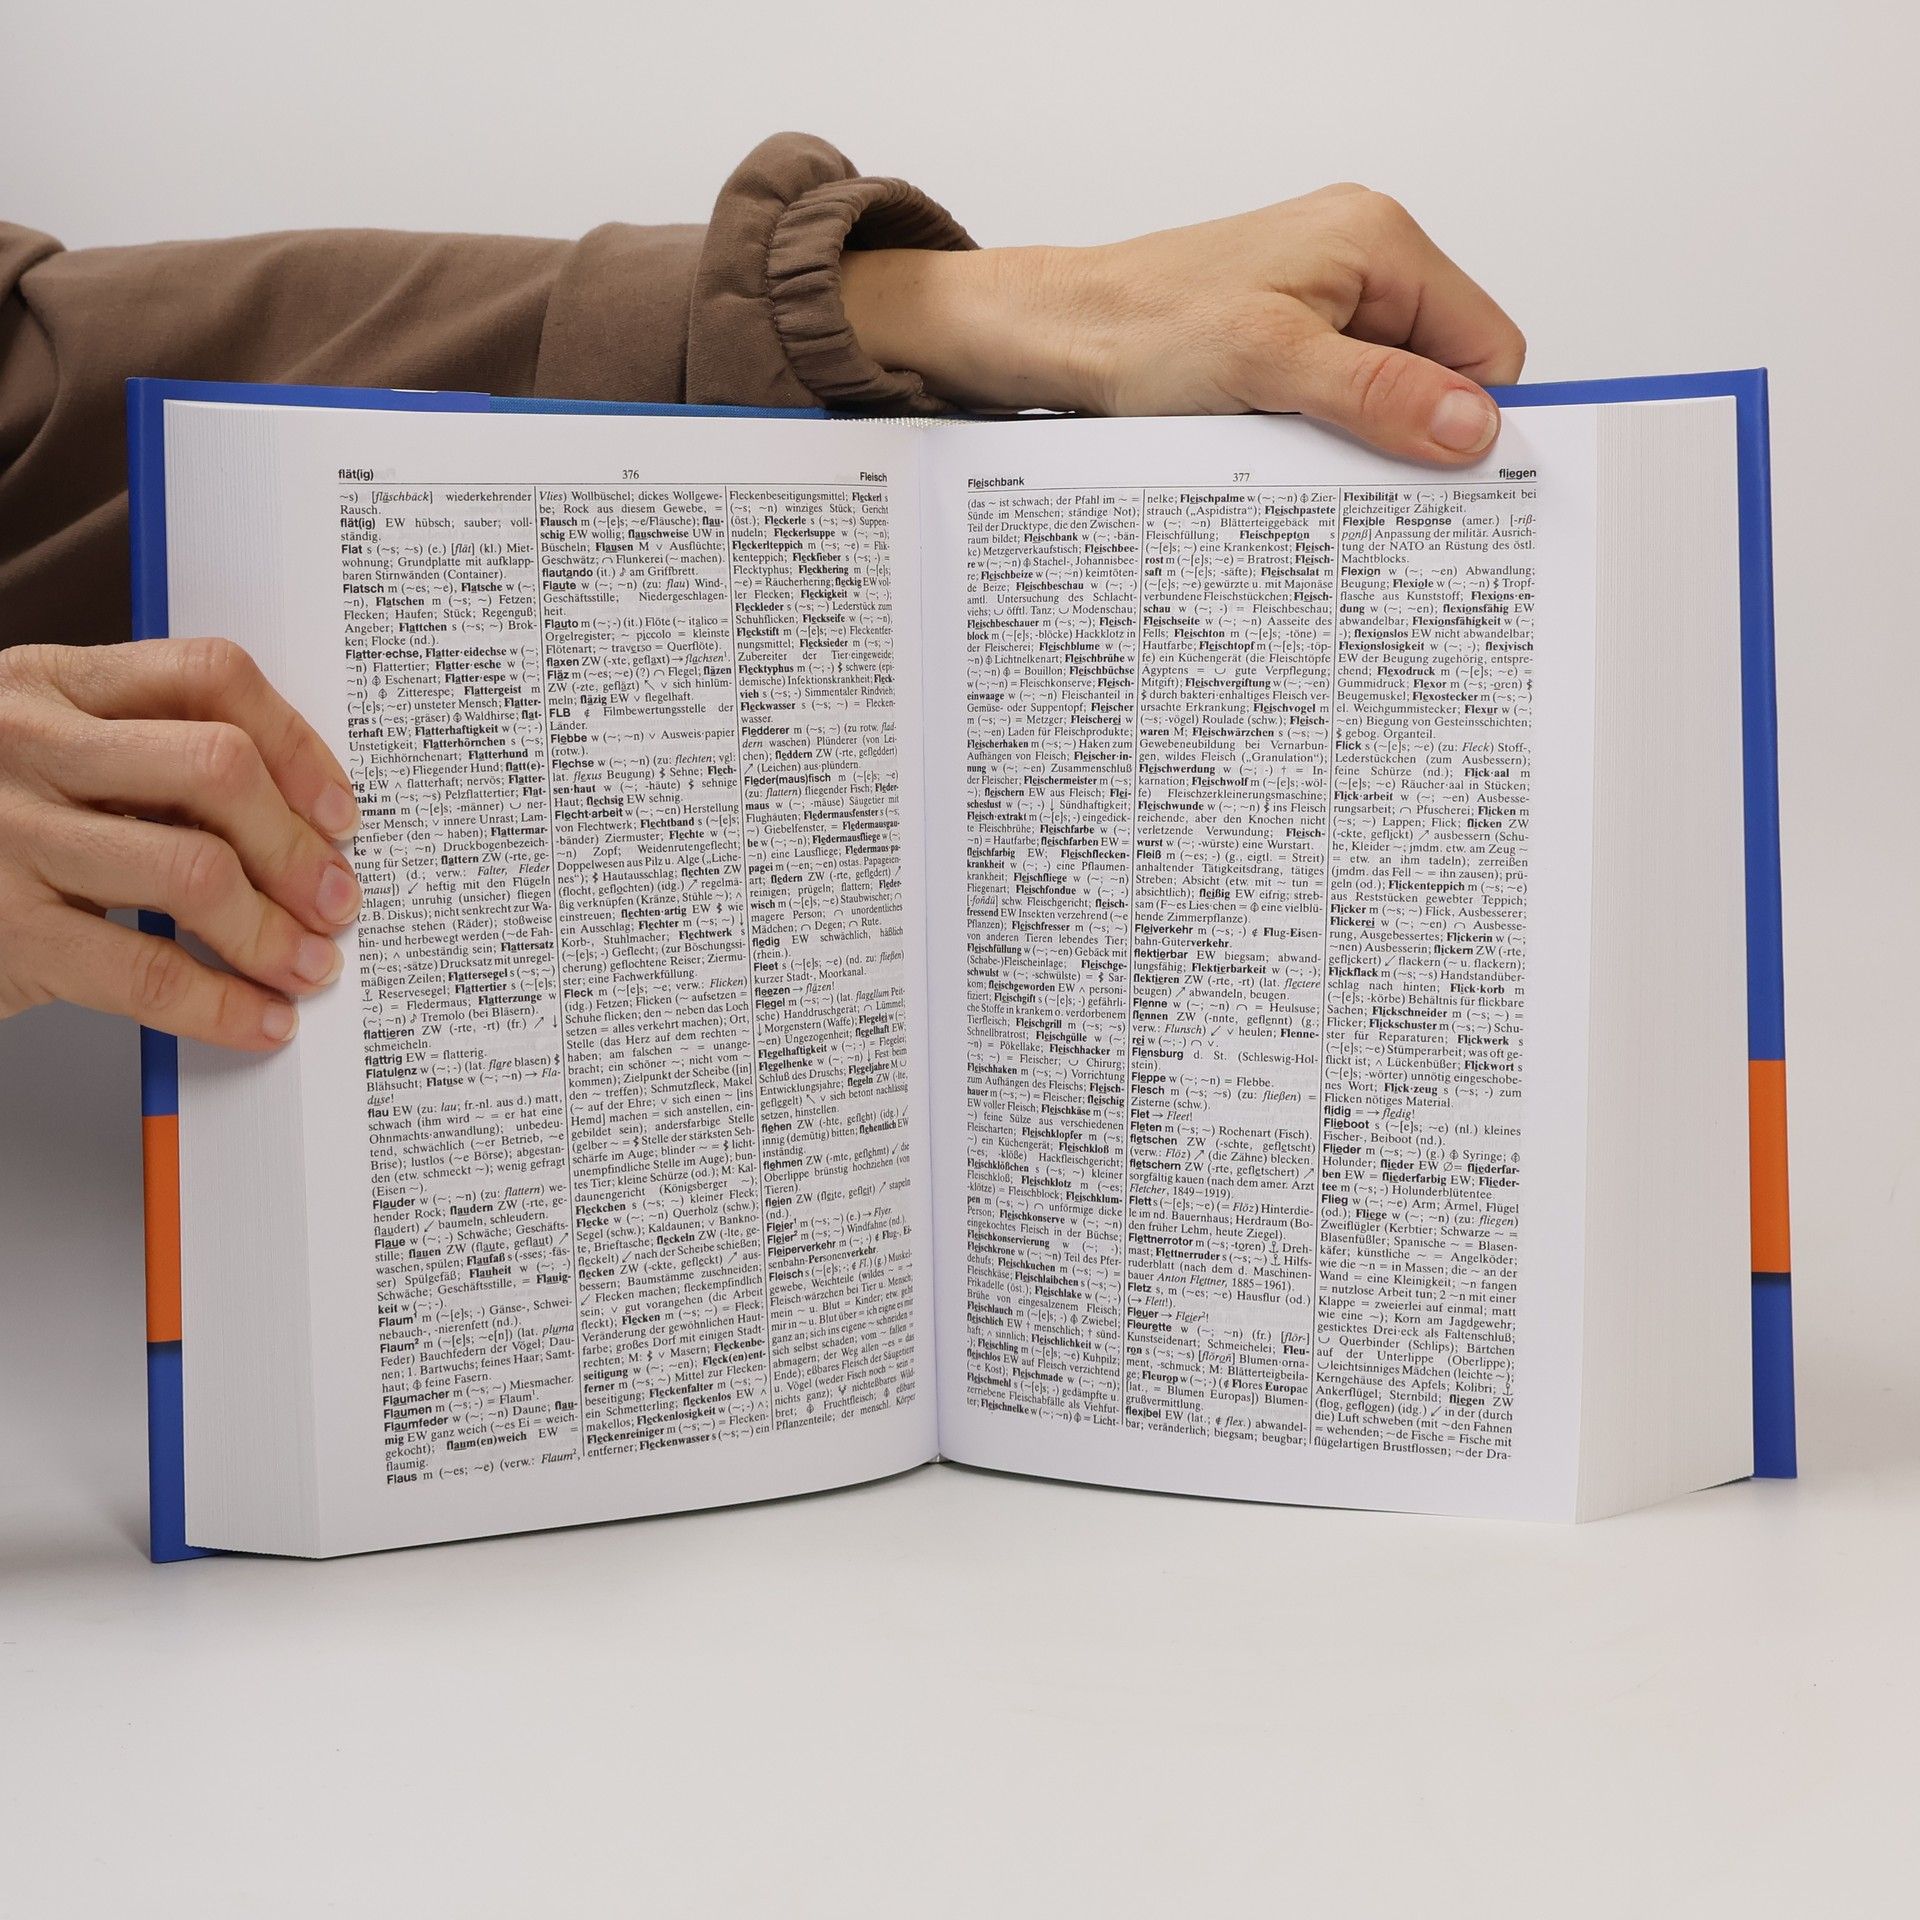 flät(ig)
376
Fleisch
~s) [fläschbäck] wiederkehrender
Rausch.
flät(ig) EW hübsch; sauber; voll-
ständig.
Flat s (~s; ~s) (e.) [flät] (kl.) Miet-
wohnung; Grundplatte mit aufklapp-
baren Stirnwänden (Container).
Flatsch m (~es; ~e), Flatsche w (~;
~n), Flatschen m (~s; ~) Fetzen;
Flecken; Haufen; Stück; Regenguß;
Angeber; Flattchen s (~s; ~) Brok-
ken; Flocke (nd.).
Flatter·echse, Flatter·eidechse w (~;
~n) Flattertier; Flatter·esche w (~;
~n) Eschenart; Flatter·espe w (~;
~n) Zitterespe; Flattergeist m
(~[e]s; ~er) unsteter Mensch; Flatter-
gras s (~es; -gräser) Waldhirse; flat-
terhaft EW; Flatterhaftigkeit w (~; -)
Unstetigkeit; Flatterhörnchen s (~s;
~) Eichhörnchenart; Flatterhund m
(~[e]s; ~e) Fliegender Hund; flatt(e)-
rig EW ∧ flatterhaft; nervös; Flatter-
maki m (~s; ~s) Pelzflattertier; Flat-
ermann m (~[e]s; -männer) ∪ ner-
öser Mensch; ∨ innere Unrast; Lam-
penfieber (den ~ haben); Flattermar-
ke w (~; ~n) Druckbogenbezeich-
nung für Setzer; flattern ZW (-rte, ge-
flattert) (d.; verw.: Falter, Fleder
maus]) ↙ heftig mit den Flügeln
chlagen; unruhig (unsicher) fliegen
(z. B. Diskus); nicht senkrecht zur Wa-
genachse stehen (Räder); stoßweise
hin- und herbewegt werden (~de Fah-
nen); ∧ unbeständig sein; Flattersatz
m (~es; -sätze) Drucksatz mit unregel-
mäßigen Zeilen; Flattersegel s (~s; ~)
⚓ Reservesegel; Flattertier s (~[e]s;
~e) = Fledermaus; Flatterzunge w
(~; ~n) ♪ Tremolo (bei Bläsern).
flattieren ZW (-rte, -rt) (fr.) ↗ ↓
schmeicheln.
flattrig EW = flatterig.
Flatulenz w (~; -) (lat. flare blasen) $
Blähsucht; Flatuse w (~; ~n) → Fla-
duse!
flau EW (zu: lau; fr.-nl. aus d.) matt,
schwach (ihm wird ~ = er hat eine
Ohnmachts·anwandlung); unbedeu-
tend, schwächlich (~er Betrieb, ~e
Brise); lustlos (~e Börse); abgestan-
den (etw. schmeckt ~); wenig gefragt
(Eisen ~).
Flauder w (~; ~n) (zu: flattern) we-
hender Rock; flaudern ZW (-rte, ge-
flaudert) ↙ baumeln, schleudern.
Flaue w (~; -) Schwäche; Geschäfts-
stille; flauen ZW (flaute, geflaut) ↗
waschen, spülen; Flaufaß s (-sses; -fäs-
ser) Spülgefäß; Flauheit w (~; -)
Schwäche; Geschäftsstille, = Flauig-
keit w (~; -).
Flaum¹ m (~[e]s; -) Gänse-, Schwei-
nebauch-, -nierenfett (nd.).
Flaum² m (~[e]s; ~e[n]) (lat. pluma
Feder) Bauchfedern der Vögel; Dau-
nen; 1. Bartwuchs; feines Haar; Samt-
haut; feine Fasern.
Flaumacher m (~s; ~) Miesmacher.
Flaumen m (~s; -) = Flaum¹.
Flaumfeder w (~; ~n) Daune; flau-
mig EW ganz weich (~es Ei = weich-
gekocht); flaum(en)weich EW =
flaumig.
Flaus m (~es; ~e) (verw.: Flaum²,
Vlies) Wollbüschel; dickes Wollgewe-
be; Rock aus diesem Gewebe, =
Flausch m (~[e]s; ~e/Fläusche); flau-
schig EW wollig; flauschweise UW in
Büscheln; Flausen M ∨ Ausflüchte;
Geschwätz; ∩ Flunkerei (~ machen).
flautando (it.) ♪ am Griffbrett.
Flaute w (~; ~n) (zu: flau) Wind-,
Geschäftsstille; Niedergeschlagen-
heit.
Flauto m (~; -) (it.) Flöte (~ italico =
Orgelregister; ~ piccolo = kleinste
Flötenart; ~ traverso = Querflöte).
flaxen ZW (-xte, geflaxt) → flachsen¹.
Fläz m (~es; ~e) (?) ∩ Flegel; fläzen
ZW (-zte, gefläzt) ↖ ∨ sich hinlüm-
meln; fläzig EW ∨ flegelhaft.
FLB ¢ Filmbewertungsstelle der
Länder.
Flebbe w (~; ~n) ∨ Ausweis·papier
(rotw.).
Flechse w (~; ~n) (zu: flechten; vgl:
lat. flexus Beugung) $ Sehne; Flech-
sen·haut w (~; -häute) $ sehnige
Haut; flechsig EW sehnig.
Flecht·arbeit w (~; ~en) Herstellung
von Flechtwerk; Flechtband s (~[e]s;
-bänder) Ziermuster; Flechte w (~;
~n) Zopf; Weidenrutengeflecht;
Doppelwesen aus Pilz u. Alge („Liche-
nes“); $ Hautausschlag; flechten ZW
(flocht, geflochten) (idg.) ↗ regelmä-
ßig verknüpfen (Kränze, Stühle ~); ∧
einstreuen; flechten·artig EW $ wie
ein Ausschlag; Flechter m (~s; ~) ↓
Korb-, Stuhlmacher; Flechtwerk s
(~[e]s; -) Geflecht; (zur Böschungssi-
cherung) geflochtene Reiser; Ziermu-
ster; eine Fachwerkfüllung.
Fleck m (~[e]s; ~e; verw.: Flicken)
(idg.) Fetzen; Flicken (~ aufsetzen =
Schuhe flicken; den ~ neben das Loch
setzen = alles verkehrt machen); Ort,
Stelle (das Herz auf dem rechten ~
haben; am falschen ~ = unange-
bracht; ein schöner ~; nicht vom ~
kommen); Zielpunkt der Scheibe ([in]
den ~ treffen); Schmutzfleck, Makel
(~ auf der Ehre; ∨ sich einen ~ [ins
Hemd] machen = sich anstellen, ein-
gebildet sein); andersfarbige Stelle
(gelber ~ = $ Stelle der stärksten Seh-
schärfe im Auge; blinder ~ = $ licht-
unempfindliche Stelle im Auge); bun-
tes Tier; kleine Schürze (od.); M: Kal-
daunengericht (Königsberger ~);
Fleckchen s (~s; ~) kleiner Fleck;
Flecke w (~; ~n) Querholz (schw.);
Segel (schw.); Kaldaunen; ∨ Bankno-
te, Brieftasche; fleckeln ZW (-lte, ge-
fleckelt) ↙ nach der Scheibe schießen;
flecken ZW (-ckte, gefleckt) ↗ aus-
bessern; Baumstämme zuschneiden;
↙ Flecken machen; fleckempfindlich
sein; ∨ gut vorangehen (die Arbeit
fleckt); Flecken m (~s; ~) = Fleck;
Veränderung der gewöhnlichen Haut-
farbe; großes Dorf mit einigen Stadt-
rechten; M: $ ∨ Masern; Fleckenbe-
seitigung w (~; ~en); Fleck(en)ent-
ferner m (~s; ~) Mittel zur Flecken-
beseitigung; Fleckenfalter m (~s; ~)
ein Schmetterling; fleckenlos EW ∧
makellos; Fleckenlosigkeit w (~; -) ∧;
Fleckenreiniger m (~s; ~) = Flecken-
entferner; Fleckenwasser s (~s; ~) ein
Fleckenbeseitigungsmittel; Fleckerl s
(~s; ~n) winziges Stück; Gericht
(öst.); Fleckerle s (~s; ~s) Suppen-
nudeln; Fleckerlsuppe w (~; ~n);
Fleckerlteppich m (~s; ~e) = Flik-
kenteppich; Fleckfieber s (~s; -) =
Flecktyphus; Fleckhering m (~[e]s;
~e) = Räucherhering; fleckig EW vol-
ler Flecken; Fleckigkeit w (~; -);
Fleckleder s (~s; ~) Lederstück zum
Schuhflicken; Fleckseife w (~; ~n),
Fleckstift m (~[e]s; ~e) Fleckentfer-
nungsmittel; Flecksieder m (~s; ~)
Zubereiter der Tier·eingeweide;
Flecktyphus m (~; -) $ schwere (epi-
demische) Infektionskrankheit; Fleck-
vieh s (~s; -) Simmentaler Rindvieh;
Fleckwasser s (~s; ~) = Flecken-
wasser.
Fledderer m (~s; ~) (zu rotw. flad-
dern waschen) Plünderer (von Lei-
chen); fleddern ZW (-rte, gefleddert)
↗ (Leichen) aus·plündern.
Fleder(maus)fisch m (~[e]s; ~e)
(zu: flattern) fliegender Fisch; Fleder-
maus w (~; -mäuse) Säugetier mit
Flughäuten; Fledermausfenster s (~s;
~) Giebelfenster, = Fledermausgau-
be w (~; ~n); Fledermausfliege w (~;
~n) eine Lausfliege; Fledermaus·pa-
pagei m (~en; ~en) ostas. Papageien-
art; fledern ZW (-rte, gefledert) ↗
reinigen; prügeln; flattern; Fleder-
wisch m (~es; ~e) Staubwischer; ∩
magere Person; ∩ unordentliches
Mädchen; ∩ Degen; ∩ Rute.
fledig EW schwächlich, häßlich
(rhein.).
Fleet s (~[e]s; ~e) (nd. zu: fließen)
kurzer Stadt-, Moorkanal.
fleezen → fläzen!
Flegel m (~s; ~) (lat. flagellum Peit-
sche) Handdruschgerät; ∩ Lümmel;
↓ Morgenstern (Waffe); Flegelei w (~;
~en) Ungezogenheit; flegelhaft EW;
Flegelhaftigkeit w (~; -) = Flegelei;
Flegelhenke w (~; ~n) ↓ Fest beim
Schluß des Druschs; Flegeljahre M ∪
Entwicklungsjahre; flegeln ZW (-lte,
geflegelt) ↖ ∨ sich betont nachlässig
setzen, hinstellen.
flehen ZW (-hte, gefleht) (idg.) ↙
innig (demütig) bitten; flehentlich EW
inständig.
flehmen ZW (-mte, geflehmt) ↙ die
Oberlippe brünstig hochziehen (von
Tieren).
fleien ZW (fleite, gefleit) ↗ stapeln
(nd.).
Fleier¹ m (~s; ~) (e.) → Flyer.
Fleier² m (~s; ~) Windfahne (nd.).
Fleiperverkehr m (~s; -) ¢ Flug-, Ei-
senbahn-Personenverkehr.
Fleisch s (~[e]s; -; ¢ Fl.) (g.) Muskel-
gewebe, Weichteile (wildes ~ = →
Fleisch·wärzchen bei Tier u. Mensch;
mein ~ u. Blut = Kinder; etw. geht
mir in ~ u. Blut über = ich eigne es mir
ganz an; sich ins eigene ~ schneiden =
sich selbst schaden; vom ~ fallen =
abmagern; der Weg allen ~es = das
Ende); eßbares Fleisch der Säugetiere
u. Vögel (weder Fisch noch ~ sein =
nichts ganz); nichteßbares Wild-
bret; Fruchtfleisch; eßbare
Pflanzenteile; der menschl. Körper
Fleischbank
377
fliegen
(das ~ ist schwach; der Pfahl im ~ =
Sünde im Menschen; ständige Not);
Teil der Drucktype, die den Zwischen-
raum bildet; Fleischbank w (~; -bän-
ke) Metzgerverkaufstisch; Fleischbee-
re w (~; ~n) Stachel-, Johannisbee-
re; Fleischbeize w (~; ~n) keimtöten-
de Beize; Fleischbeschau w (~; -)
amtl. Untersuchung des Schlacht-
viehs; ∪ öfftl. Tanz; ∪ Modenschau;
Fleischbeschauer m (~s; ~); Fleisch-
block m (~[e]s; -blöcke) Hackklotz in
der Fleischerei; Fleischblume w (~;
~n) Lichtnelkenart; Fleischbrühe w
(~; ~n) = Bouillon; Fleischbüchse
w (~; ~n) = Fleischkonserve; Fleisch-
einwaage w (~; ~n) Fleischanteil in
Gemüse- oder Suppentopf; Fleischer
m (~s; ~) = Metzger; Fleischerei w
(~; ~en) Laden für Fleischprodukte;
Fleischerhaken m (~s; ~) Haken zum
Aufhängen von Fleisch; Fleischer·in-
nung w (~; ~en) Zusammenschluß
der Fleischer; Fleischermeister m (~s;
~); fleischern EW aus Fleisch; Flei-
scheslust w (~; -) ↓ Sündhaftigkeit;
Fleisch·extrakt m (~s; ~) eingedick-
te Fleischbrühe; Fleischfarbe w (~;
~n) = Hautfarbe; fleischfarben EW =
fleischfarbig EW; Fleischflecken-
krankheit w (~; -) eine Pflaumen-
krankheit; Fleischfliege w (~; ~n)
Fliegenart; Fleischfondue w (~; -)
[-fondü] schw. Fleischgericht; fleisch-
fressend EW Insekten verzehrend (~e
Pflanzen); Fleischfresser m (~s; ~)
von anderen Tieren lebendes Tier;
Fleischfüllung w (~; ~en) Gebäck mit
(Schabe-)Fleischeinlage; Fleischge-
schwulst w (~; -schwülste) = $ Sar-
kom; fleischgeworden EW ∧ personi-
fiziert; Fleischgift s (~[e]s; -) gefährli-
che Stoffe in krankem o. verdorbenem
Tierfleisch; Fleischgrill m (~s; ~s)
Schnellbratrost; Fleischgülle w (~;
~n) = Pökellake; Fleischhacker m
(~s; ~) = Fleischer; ∪ Chirurg;
Fleischhaken m (~s; ~) Vorrichtung
zum Aufhängen des Fleischs; Fleisch-
hauer m (~s; ~) = Fleischer; fleischig
EW voller Fleisch; Fleischkäse m (~s;
~) feine Sülze aus verschiedenen
Fleischarten; Fleischklopfer m (~s;
~) ein Küchengerät; Fleischkloß m
(~es; -klöße) Hackfleischgericht;
Fleischklößchen s (~s; ~) kleiner
Fleischkloß; Fleischklotz m (~es;
-klötze) = Fleischblock; Fleischklum-
pen m (~s; ~) ∩ unförmige dicke
Person; Fleischkonserve w (~; ~n)
eingekochtes Fleisch in der Büchse;
Fleischkonservierung w (~; -);
Fleischkrone w (~; ~n) Teil des Pfer-
dehufs; Fleischkuchen m (~s; ~) =
Fleischkäse; Fleischlaibchen s (~s; ~)
Frikadelle (öst.); Fleischlake w (~; -)
Brühe von eingesalzenem Fleisch;
Fleischlauch m (~[e]s; -) Zwiebel;
fleischlich EW † menschlich; † sünd-
haft; ∧ sinnlich; Fleischlichkeit w (~;
-); Fleischling m (~[e]s; ~e) Kuhpilz;
fleischlos EW auf Fleisch verzichtend
(~e Kost); Fleischmade w (~; ~n);
Fleischmehl s (~[e]s; -) gedämpfte u.
zerriebene Fleischabfälle als Viehfut-
ter; Fleischnelke w (~; ~n) = Licht-
nelke; Fleischpalme w (~; ~n) Zier-
strauch („Aspidistra“); Fleischpastete
w (~; ~n) Blätterteiggebäck mit
Fleischfüllung; Fleischpepton s
(~[e]s; ~) eine Krankenkost; Fleisch-
rost m (~[e]s; ~e) = Bratrost; Fleisch-
saft m (~[e]s; -säfte); Fleischsalat m
(~[e]s; ~e) gewürzte u. mit Majonäse
verbundene Fleischstückchen; Fleisch-
schau w (~; -) = Fleischbeschau;
Fleischseite w (~; ~n) Aasseite des
Fells; Fleischton m (~[e]s; -töne) =
Hautfarbe; Fleischtopf m (~[e]s; -töp-
fe) ein Küchengerät (die Fleischtöpfe
Ägyptens = ∪ gute Verpflegung;
Mitgift); Fleischvergiftung w (~; ~en)
$ durch bakteri·enhaltiges Fleisch ver-
ursachte Erkrankung; Fleischvogel m
(~s; -vögel) Roulade (schw.); Fleisch-
waren M; Fleischwärzchen s (~s; ~)
Gewebeneubildung bei Vernarbun-
gen, wildes Fleisch („Granulation“);
Fleischwerdung w (~; -) † = In-
karnation; Fleischwolf m (~[e]s; -wöl-
fe) Fleischzerkleinerungsmaschine;
Fleischwunde w (~; ~n) $ ins Fleisch
reichende, aber den Knochen nicht
verletzende Verwundung; Fleisch-
wurst w (~; -würste) eine Wurstart.
Fleiß m (~es; -) (g., eigtl. = Streit)
anhaltender Tätigkeitsdrang, tätiges
Streben; Absicht (etw. mit ~ tun =
absichtlich); fleißig EW eifrig; streb-
sam (F~es Lies·chen = eine vielblü-
hende Zimmerpflanze).
Fleiverkehr m (~s; -) ¢ Flug-Eisen-
bahn-Güterverkehr.
flektierbar EW biegsam; abwand-
lungsfähig; Flektierbarkeit w (~; -);
flektieren ZW (-rte, -rt) (lat. flectere
beugen) ↗ abwandeln, beugen.
Flenne w (~; ~n) ∩ = Heulsuse;
flennen ZW (-nnte, geflennt) (g.;
verw.: Flunsch) ↙ ∨ heulen; Flenne-
rei w (~; -) ∩ ∨.
Flensburg d. St. (Schleswig-Hol-
stein).
Fleppe w (~; ~n) = Flebbe.
Flesch m (~s; ~s) (zu: fließen) =
Zisterne (schw.).
Flet → Fleet!
Fleten m (~s; ~) Rochenart (Fisch).
fletschen ZW (-schte, gefletscht)
(verw.: Flöz) ↗ (die Zähne) blecken.
fletschern ZW (-rte, gefletschert) ↗
sorgfältig kauen (nach dem amer. Arzt
Fletcher, 1849–1919).
Flett s (~[e]s; ~e) (= Flöz) Hinterdie-
le im nd. Bauernhaus; Herdraum (Bo-
den früher Lehm, heute Ziegel).
Flettnerrotor m (~s; -toren) ⚓ Dreh-
mast; Flettnerruder s (~s; ~) ⚓ Hilfs-
ruderblatt (nach dem d. Maschinen-
bauer Anton Flettner, 1885–1961).
Fletz s, m (~es; ~e) Hausflur (od.)
(→ Flett!).
Fleuer → Fleier²!
Fleurette w (~; ~n) (fr.) [flör-]
Kunstseidenart; Schmeichelei; Fleu-
ron s (~s; ~s) [flöron̄] Blumen·orna-
ment, -schmuck; M: Blätterteigbeila-
gen; Fleurop w (~; -) (¢ Flores Europae
[lat., = Blumen Europas]) Blumen-
grußvermittlung.
flexibel EW (lat.; ¢ flex.) abwandel-
bar; veränderlich; biegsam; beugbar;
Flexibilität w (~; -) Biegsamkeit bei
gleichzeitiger Zähigkeit.
Flexible Response (amer.) [-riß-
ponß] Anpassung der militär. Ausrich-
tung der NATO an Rüstung des östl.
Machtblocks.
Flexion w (~; ~en) Abwandlung;
Beugung; Flexiole w (~; ~n) $ Tropf-
flasche aus Kunststoff; Flexions·en-
dung w (~; ~en); flexionsfähig EW
abwandelbar; Flexionsfähigkeit w (~;
-); flexionslos EW nicht abwandelbar;
Flexionslosigkeit w (~; -); flexivisch
EW der Beugung zugehörig, entspre-
chend; Flexodruck m (~[e]s; ~e) =
Gummidruck; Flexor m (~s; -oren) $
Beugemuskel; Flexostecker m (~s; ~)
el. Weichgummistecker; Flexur w (~;
~en) Biegung von Gesteinsschichten;
$ gebog. Organteil.
Flick s (~[e]s; ~e) (zu: Fleck) Stoff-,
Lederstückchen (zum Ausbessern);
feine Schürze (nd.); Flick·aal m
(~[e]s; ~e) Räucher·aal in Stücken;
Flick·arbeit w (~; ~en) Ausbesse-
rungsarbeit; ∩ Pfuscherei; Flicken m
(~s; ~) Lappen; Flick; flicken ZW
(-ckte, geflickt) ↗ ausbessern (Schu-
he, Kleider ~; jmdm. etw. am Zeug ~
= etw. an ihm tadeln); zerreißen
(jmdm. das Fell ~ = ihn zausen); prü-
geln (od.); Flickenteppich m (~s; ~e)
aus Reststücken gewebter Teppich;
Flicker m (~s; ~) Flick, Ausbesserer;
Flickerei w (~; ~en) ∩ Ausbesse-
rung, Ausgebessertes; Flickerin w (~;
~nen) Ausbesserin; flickern ZW (-rte,
geflickert) ↙ flackern (~ u. flackern);
Flickflack m (~s; ~s) Handstandüber-
schlag nach hinten; Flick·korb m
(~[e]s; -körbe) Behältnis für flickbare
Sachen; Flickschneider m (~s; ~) =
Flicker; Flickschuster m (~s; ~) Schu-
ster für Reparaturen; Flickwerk s
(~[e]s; ~e) Stümperarbeit; was oft ge-
flickt ist; ∧ Lückenbüßer; Flickwort s
(~[e]s; -wörter) unnötig eingeschobe-
nes Wort; Flick·zeug s (~s; -) zum
Flicken nötiges Material.
flidig = → fledig!
Flieboot s (~[e]s; ~e) (nl.) kleines
Fischer-, Beiboot (nd.).
Flieder m (~s; ~) (g.) Syringe;
Holunder; flieder EW Ø= fliederfar-
ben EW = fliederfarbig EW; Flieder-
tee m (~s; -) Holunderblütentee.
Flieg w (~; ~e) Arm; Ärmel, Flügel
(od.); Fliege w (~; ~n) (zu: fliegen)
Zweiflügler (Kerbtier; Schwarze ~ =
Blasenfüßler; Spanische ~ = Blasen-
käfer; künstliche ~ = Angelköder;
wie die ~n = in Massen; die ~ an der
Wand = eine Kleinigkeit; ~n fangen
= nutzlose Arbeit tun; 2 ~n mit einer
Klappe = zweierlei auf einmal; matt
wie eine ~); Korn am Jagdgewehr;
gesticktes Drei·eck als Faltenschluß;
∪ Querbinder (Schlips); Bärtchen
auf der Unterlippe (Oberlippe);
∪ leichtsinniges Mädchen (leichte ~);
Kerngehäuse des Apfels; Kolibri; ⚓
Ankerflügel; Sternbild; fliegen ZW
(flog, geflogen) (idg.) ↙ in der (durch
die) Luft schweben (mit ~den Fahnen
= wehenden; ~de Fische = Fische mit
flügelartigen Brustflossen; ~der Dra-